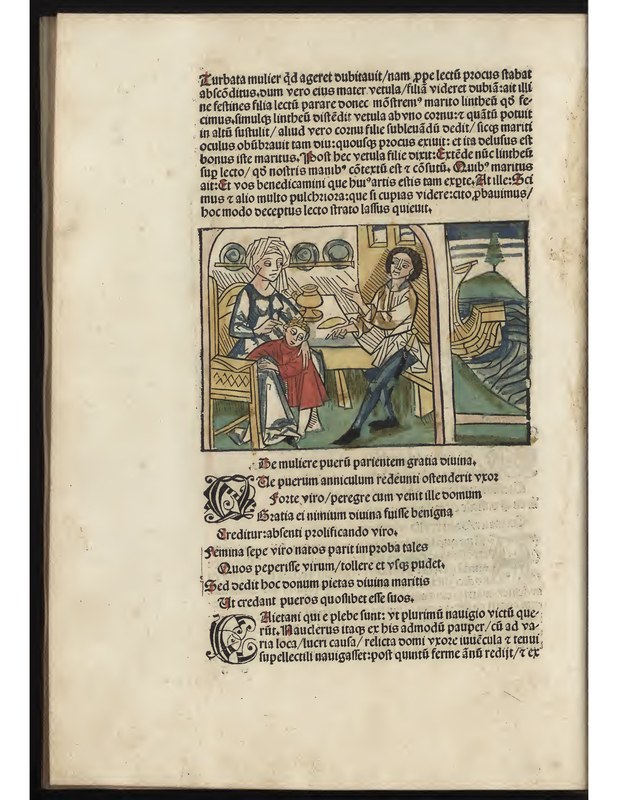 Turbata mulier qd̓ ageret dubitauit/nam ꝓpe lectū procus stabat
abscōditus.dum vero eius mater vetula/filiā videret dubiā:ait illi
ne festines filia lectū parare donec mōstremꝰ marito lintheū qd̓ fe-
cimus.simulqꝫ lintheū distēdit vetula ab vno cornu:⁊ quātū potuit
in altū sustulit/aliud vero cornu filie subleuādū dedit/sicqꝫ mariti
oculus obūbrauit tam diu:quousqꝫ procus exiuit: et ita delusus est
bonus iste maritus. Post hec vetula filie dixit: Extēde nūc lintheū
sup lecto/ qd̓ nostris manibꝰ cōtextū est ⁊ cōsutū. Quibꝰ maritus
ait: Et vos benedicamini que huiꝰ artis estis tam expte. At ille: Sci
mus ⁊ alio multo pulchriora: que si cupias videre: cito ꝓbauimus/
hoc modo deceptus lecto strato lassus quieuit.
De muliere puerū parientem gratia diuina.
QUe puerum anniculum redeunti ostenderit vxor
Forte viro/peregre cum venit ille domum
Gratia ei nimium diuina fuisse benigna
Creditur:absenti prolificando viro.
Femina sepe viro natos parit improba tales
Quos peperisse virum/tollere et vsqꝫ pudet.
Sed dedit hoc donum pietas diuina maritis
Ut credant pueros quoslibet esse suos.
CAietani qui e plebe sunt: vt plurimū nauigio victū que-
rūt. Nauclerus itaqꝫ ex his admodū pauper/cū ad va-
ria loca/lucri causa/ relicta domi vxore iuuēcula ⁊ tenui
supellectili nauigasset:post quintū ferme ānū redijt/⁊ ex